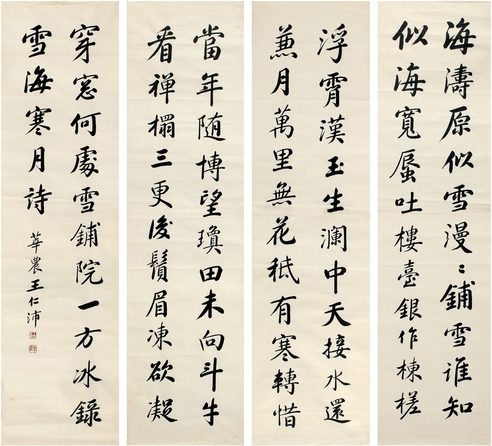 海濤原似雪漫〻鋪雪誰知
似海寬蜃吐樓臺銀作棟槎
浮霄漢玉生瀾中天接水還
兼月萬里無花秪有寒轉惜
當年隨博望瓊田未向斗牛
看禪榻三更後鬚眉凍欲凝
穿窓何處雪鋪院一方冰錄
雪海寒月詩
華農王仁沛